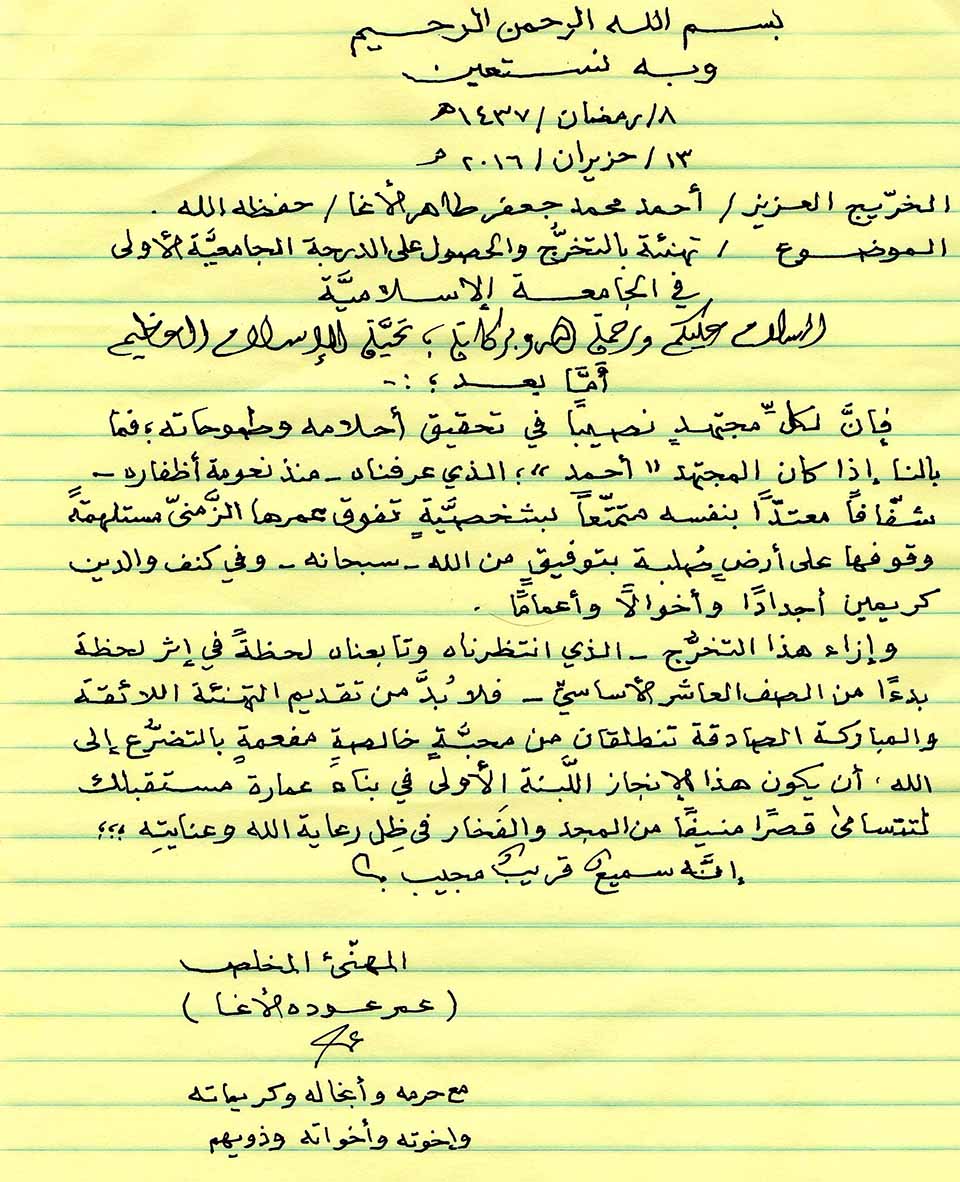 بسم الله الرحمن الرحيم
وبه نستعين
٨/ رمضان / ١٤٣٧هـ
١٣ / حزيران / ٢٠١٦ م
الخرّيج العزيز / أحمد محمد جعفر طاهر الأغا / حفظه الله .
الموضوع / تهنئة بالتخرُّج والحصول على الدرجة الجامعيَّة الأولى
في الجامعة الإسلاميَّة
السلام عليكم ورحمة الله وبركاته ؛ تحيَّة الإسلام العظيم
أمَّا بعد ؛ :-
فإنَّ لكلِّ مجتهدٍ نصيبًا في تحقيق أحلامه وطموحاته ؛ فما
بالنا إذا كان المجتهد " أحمد " ؛ الذي عرفناه - منذ نعومة أظفاره -
شفّافاً معتدًّا بنفسه متمتّعاً بشخصيَّةٍ تفوق عمرها الزَّمنيّ مستلهمةً
وقوفها على أرضٍ صُلبة بتوفيقٍ من الله - سبحانه - وفي كنف والدين
كريمين أجدادًا وأخوالًا وأعمامًا .
وإزاء هذا التخرُّج - الذي انتظرناه وتابعناه لحظةً في إثر لحظة
بدءًا من الصف العاشر الأساسيّ - فلا بُدَّ من تقديم التهنئة اللائقة
والمباركة الصادقة تنطلقان من محبَّةٍ خالصةٍ مفعمةٍ بالتضرُّع إلى
الله ، أن يكون هذا الإنجاز اللَّبنة الأولى في بناء عمارة مستقبلك
لتتسامى قصرًا منيفًا من المجد والفَخار في ظِل رعاية الله وعنايتِه ؛؛؛
إنَّه سميعٌ قريبٌ مجيب
المهنّئ المخلص
( عمر عوده الأغا )
مع حرمه وأنجاله وكريماته
وإخوته وأخواته وذويهم